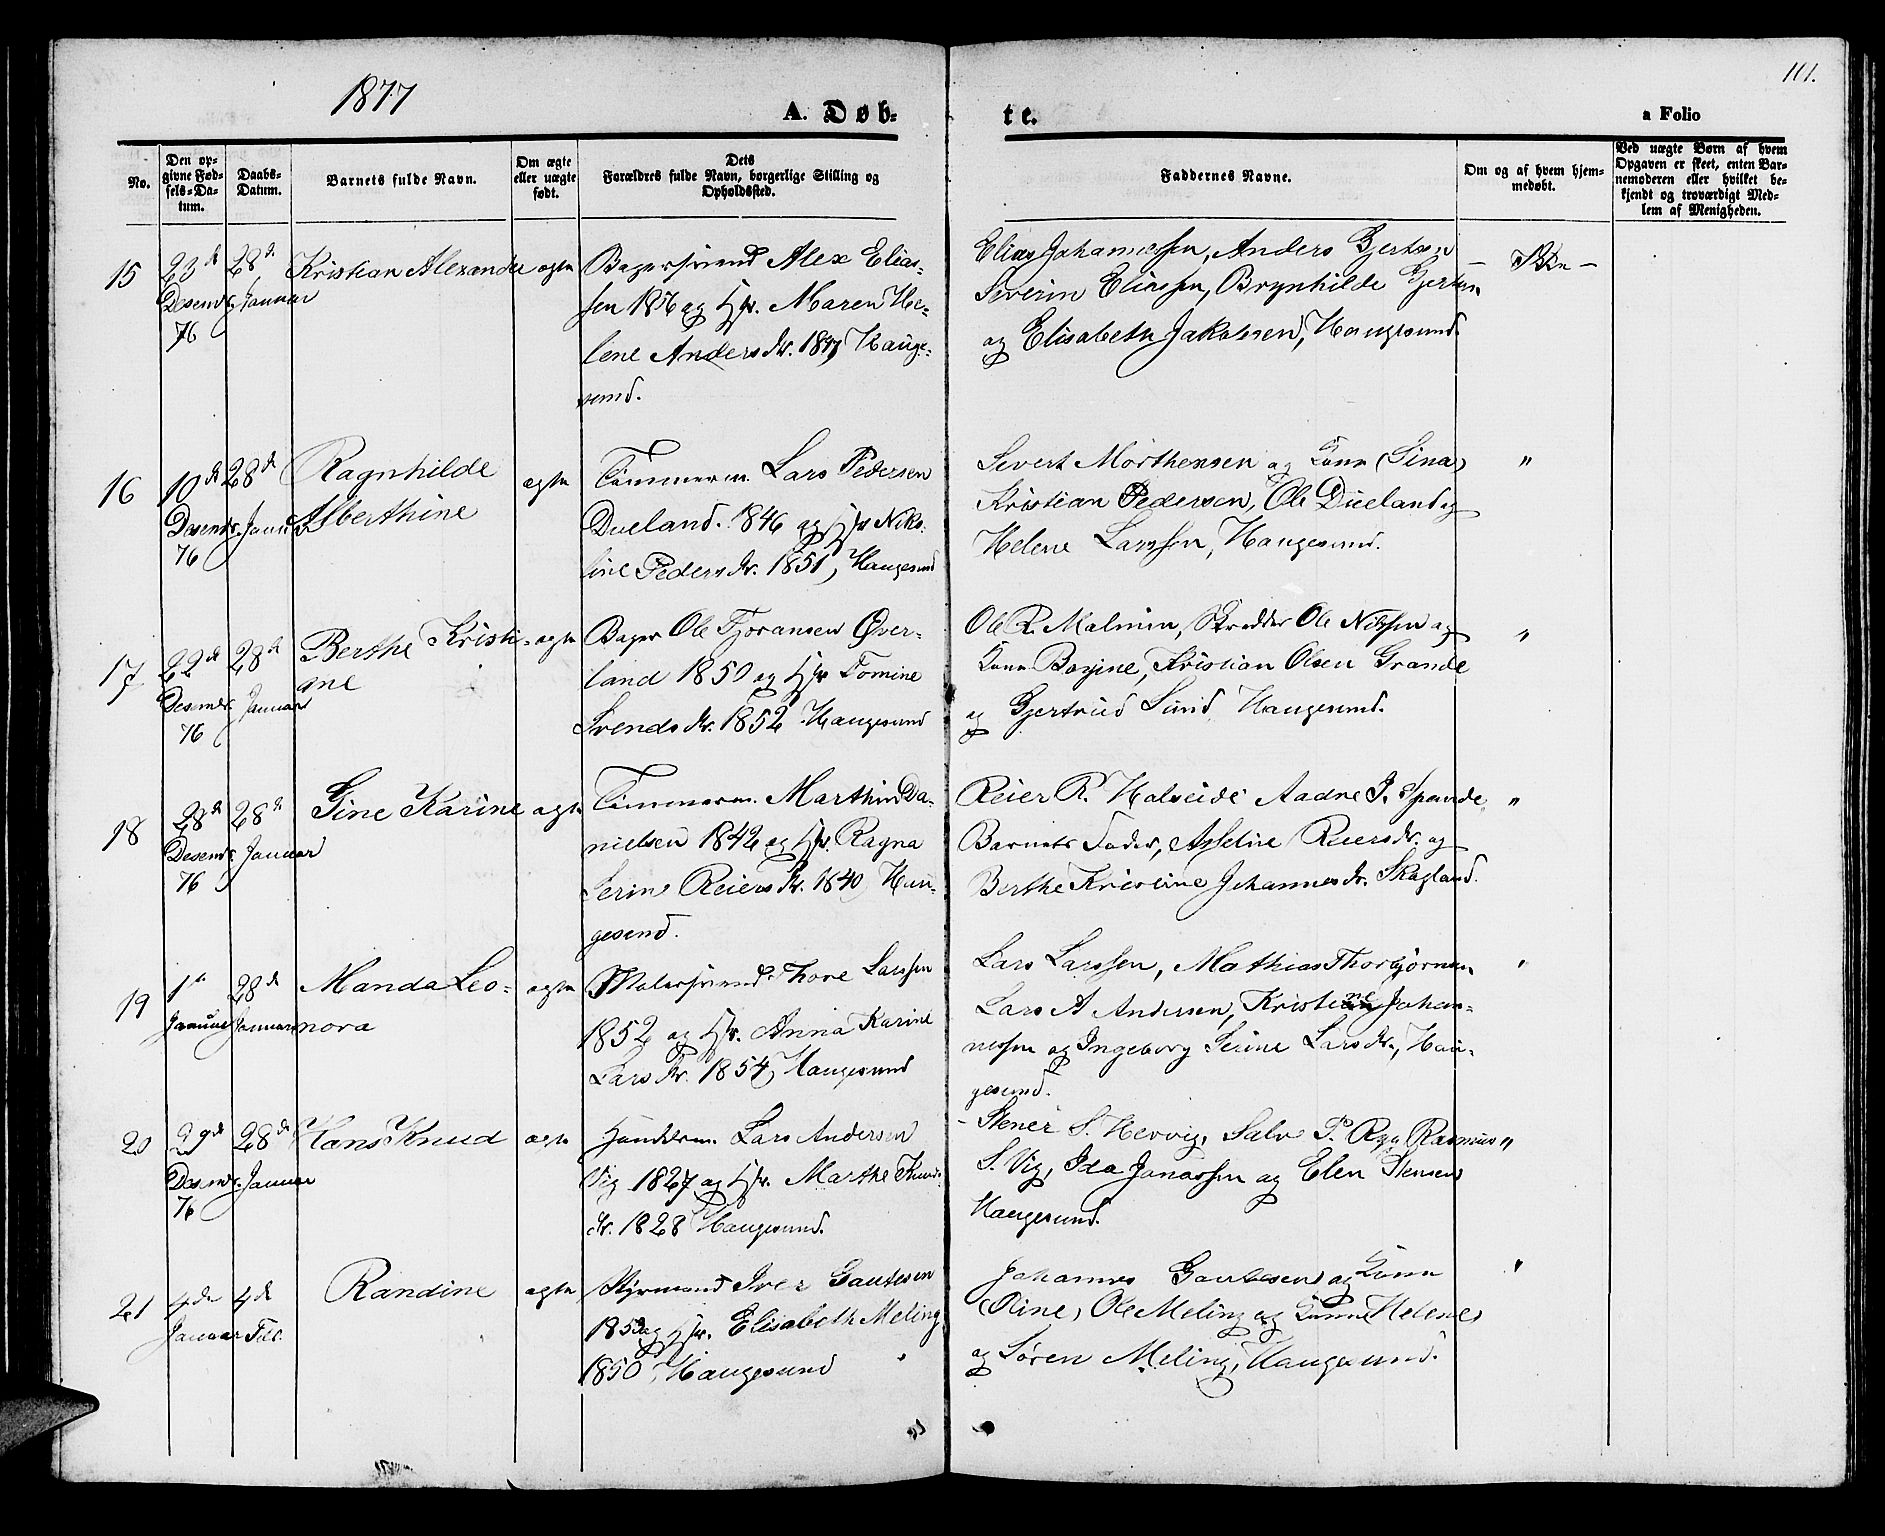 101.
1877
A. Døb-
te.
a Folio
No.
Den op-
givne Fød-
sels-Da-
tum.
Daabs-
Datum.
Barnets fulde Navn.
Om ægte
eller uægte
født.
Dets
Forældres fulde Navn, borgerlige Stilling og
Opholdssted.
Faddernes Navne.
Om og af hvem hjem-
medøbt.
Ved uægte Børn af hvem
Opgaven er skeet, enten Bar-
nemoderen eller hvilket be-
kjendt og troværdigt Med-
lem af Menigheden.
15
23de
Desembr.
76
28de
Januar
Kristian Alexander
ægte
Bagersvend Alex Elias-
sen 1856 og Hstr. Maren He-
lene Andersdr. 1847 Hauge-
sund.
Elias Johannessen, Anders Gjertsen
Severin Eliassen, Brynhilde Gjertsen
og Elisabeth Jakobsen, Haugesund.
- Ikke -
16
10de
Desembr.
76
28de
Januar
Ragnhilde
Alberthine
ægte
Tømmerm. Lars Pedersen
Dueland. 1846 og Hstr Niko-
line Pedersdr. 1851, Haugesund
Sivert Morthensen og Kone (Sina)
Kristian Pedersen, Ole Dueland og
Helene Larssen, Haugesund.
"
17
22de
Desembr.
76
28de
Januar
Berthe Kristi-
ane
ægte
Bager Ole Tjoransen Øver-
land 1850 og Hstr Tomine
Svendsdr. 1852 Haugesund
Ole R. Malmin, Skredder Ole Nilssen og
Kone Bozine, Kristian Olsen Grande
og Gjertrud Lund, Haugesund.
"
18
28de
Desembr.
76
28de
Januar
Gine Karine
ægte
Tømmerm. Marthin Da-
nielsen 1842 og Hstr. Ragna
Serine Reiersdr. 1840, Hau-
gesund.
Reier R. Halseide Aadne J. Spande
Barnets Fader, Asseline Reiersdr. og
Berthe Kristine Johannesdr. Skagland.
"
19
1ste
Januar
28de
Januar
Manda Leo-
nora
ægte
Malersvend Thore Larssen
1852 og Hstr. Anna Karine
Larsdr. 1854, Haugesund
Lars Larssen, Mathias Thorbjørnsen
Lars A Andersen, Kristine Johan-
nessen og Ingeborg Serine Larsdr., Hau-
gesund.
"
20
29de
Desembr.
76
28de
Januar
Hans Knud
ægte
Handelsm. Lars Andersen
Vig 1827 og Hstr. Marthe Knuds-
dr. 1828 Haugesund.
Stener S. Hervig, Salve P. Ryg Rasmus
S. Vig, Ida Jonassen og Elen Stensen
Haugesund.
"
21
4de
Januar
4de
Feb.
Randine
ægte
Styrmand Iver Gautesen
1853 og Hstr. Elisabeth Meling
1850, Haugesund
Johannes Gautesen og Kone
(Oine) Ole Meling og Kone Helene,
og Søren Meling, Haugesund.
"